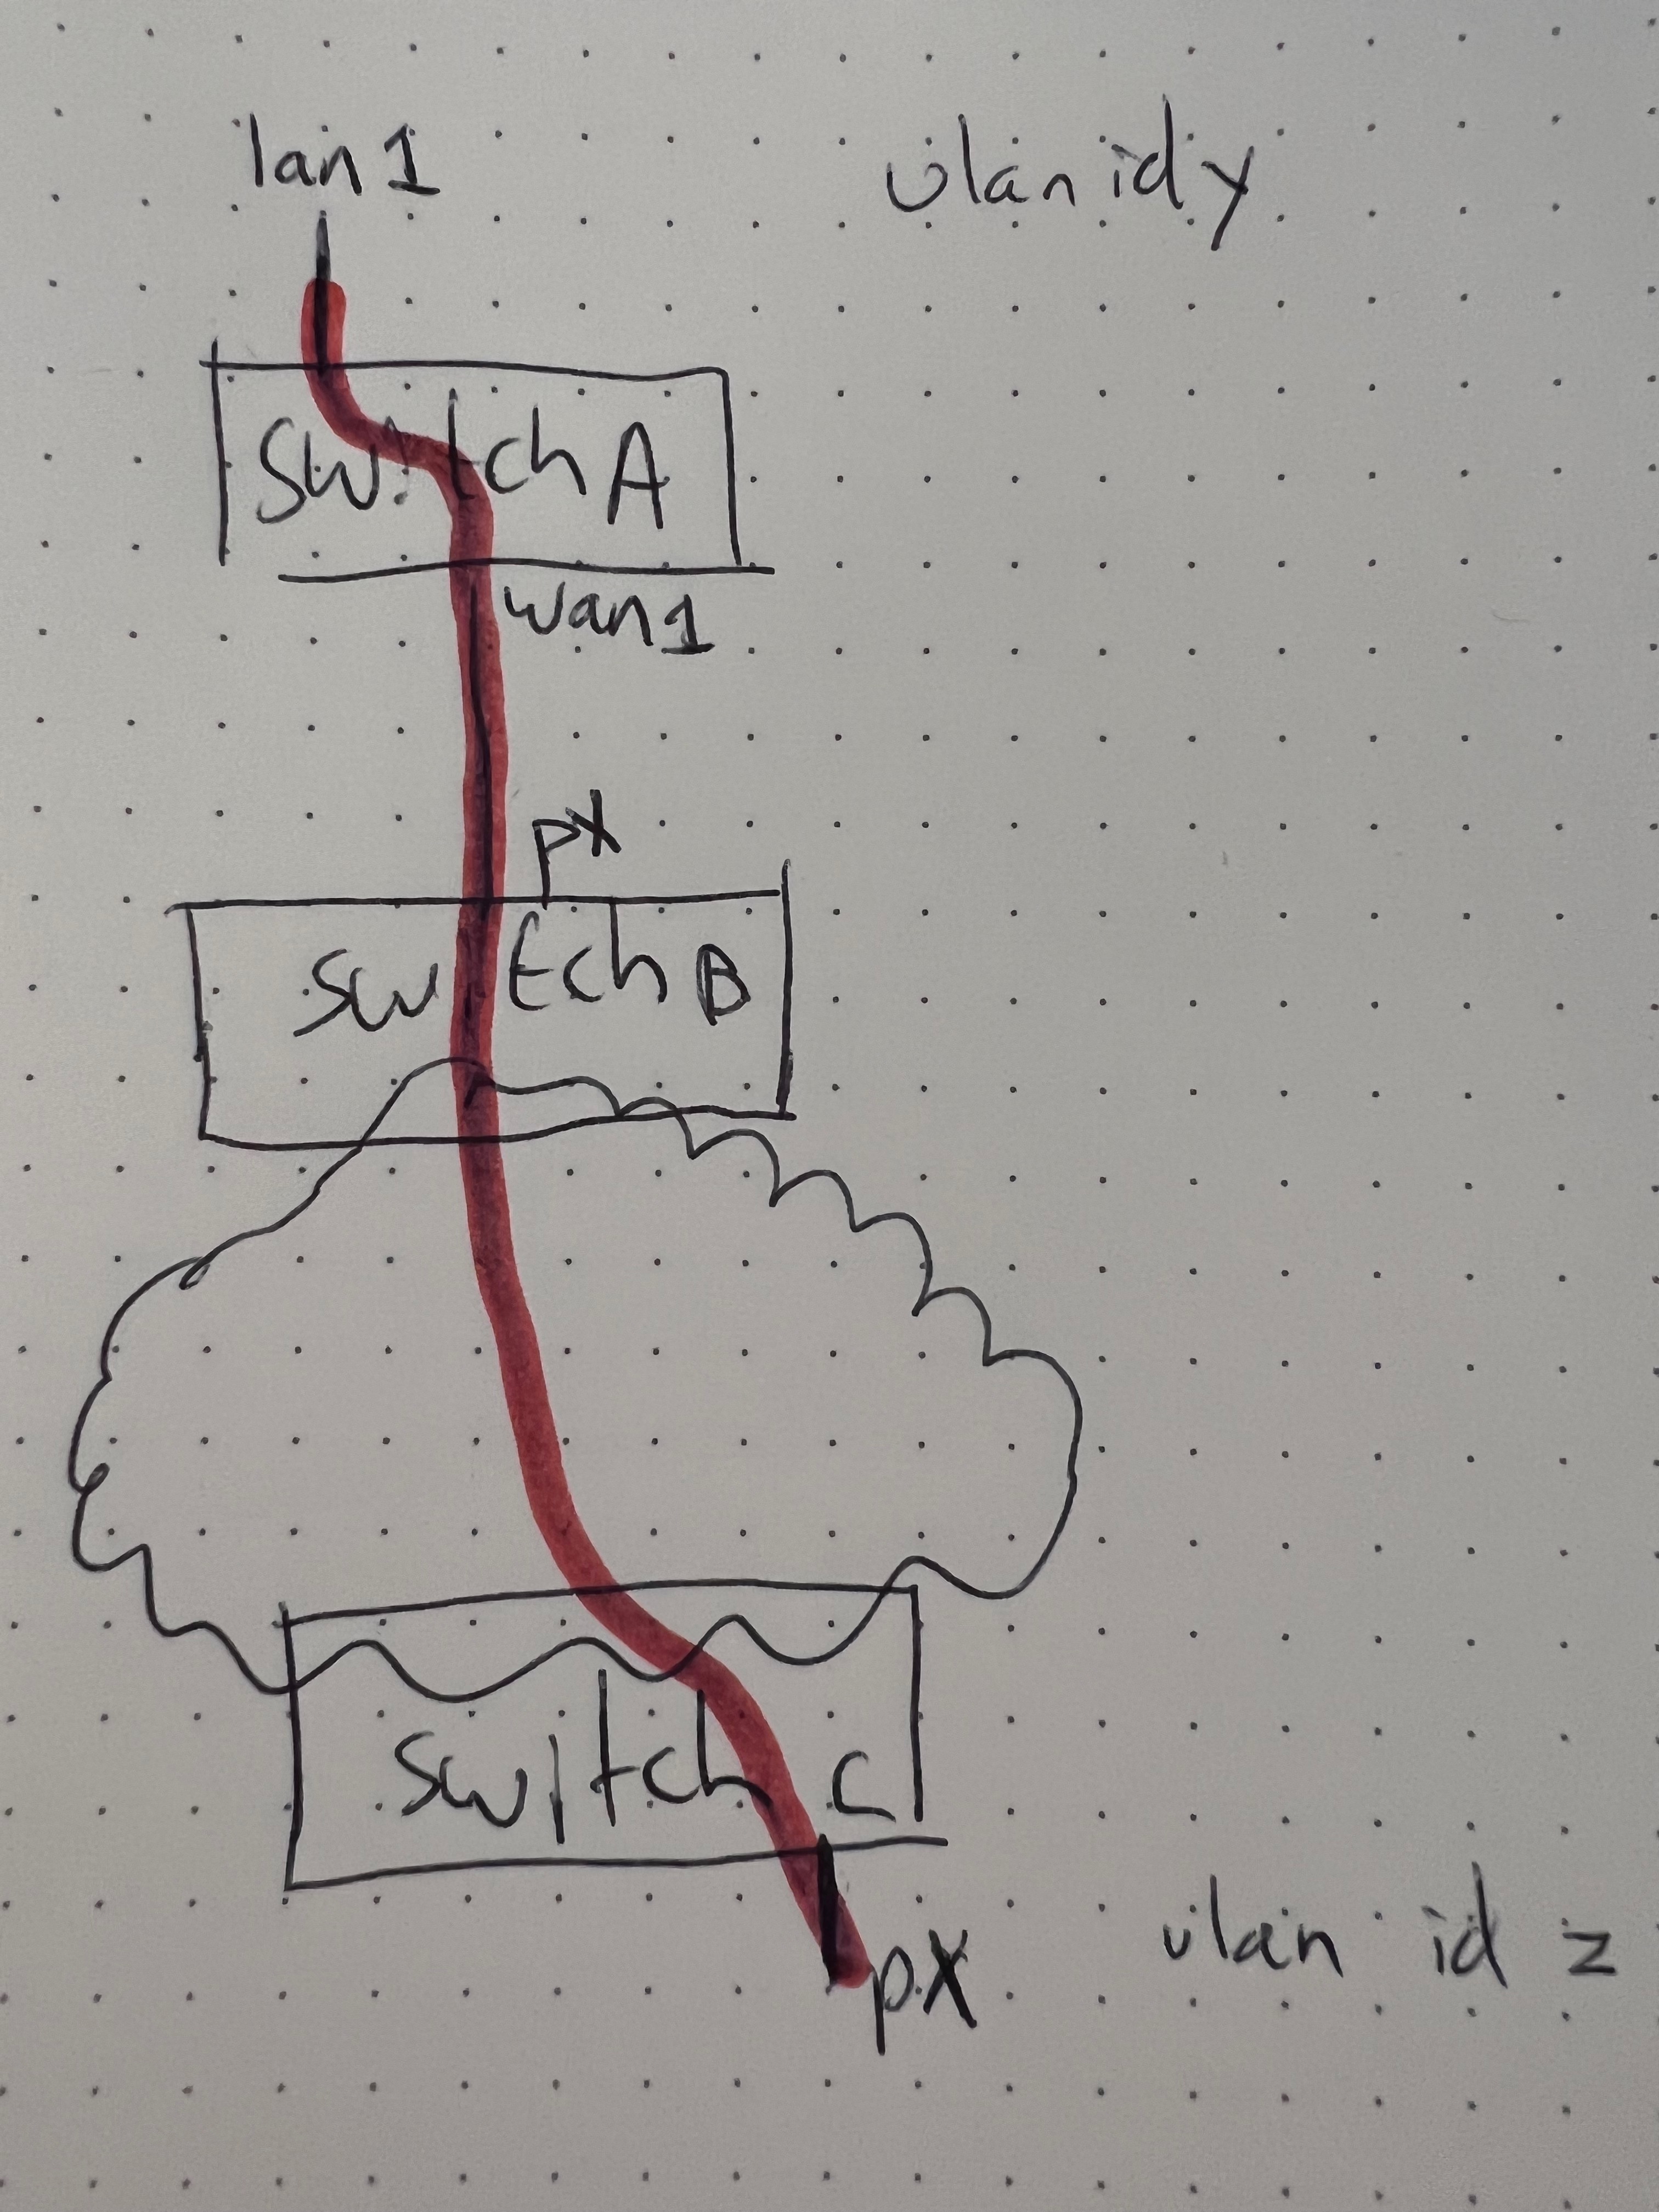 lan1
vlan id y
switch A
wan1
px
switch B
switch C
px
vlan id z